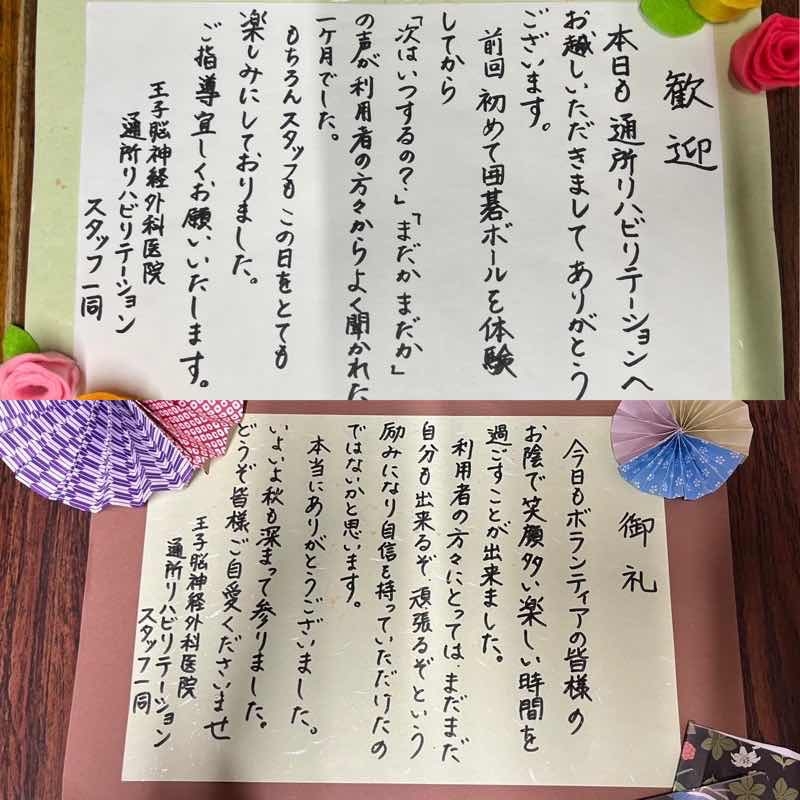 歓迎
本日も通所リハビリテーションへ
お越しいただきましてありがとう
ございます。
前回初めて囲碁ボールを体験
してから
「次はいつするの?」「まだかまだか」
の声が利用者の方々からよく聞かれた
一ケ月でした。
もちろんスタッフもこの日をとても
楽しみにしておりました。
ご指導宜しくお願いいたします。
王子脳神経外科医院
通所リハビリテーション
スタッフ一同
御礼
今日もボランティアの皆様の
お陰で笑顔多い楽しい時間を
過ごすことが出来ました。
利用者の方々にとっては、まだまだ
自分も出来るぞ、頑張るぞという
励みになり自信を持っていただけたの
ではないかと思います。
本当にありがとうございました。
いよいよ秋も深まって参りました。
どうぞ皆様ご自愛くださいませ
王子脳神経外科医院
通所リハビリテーション
スタッフ一同